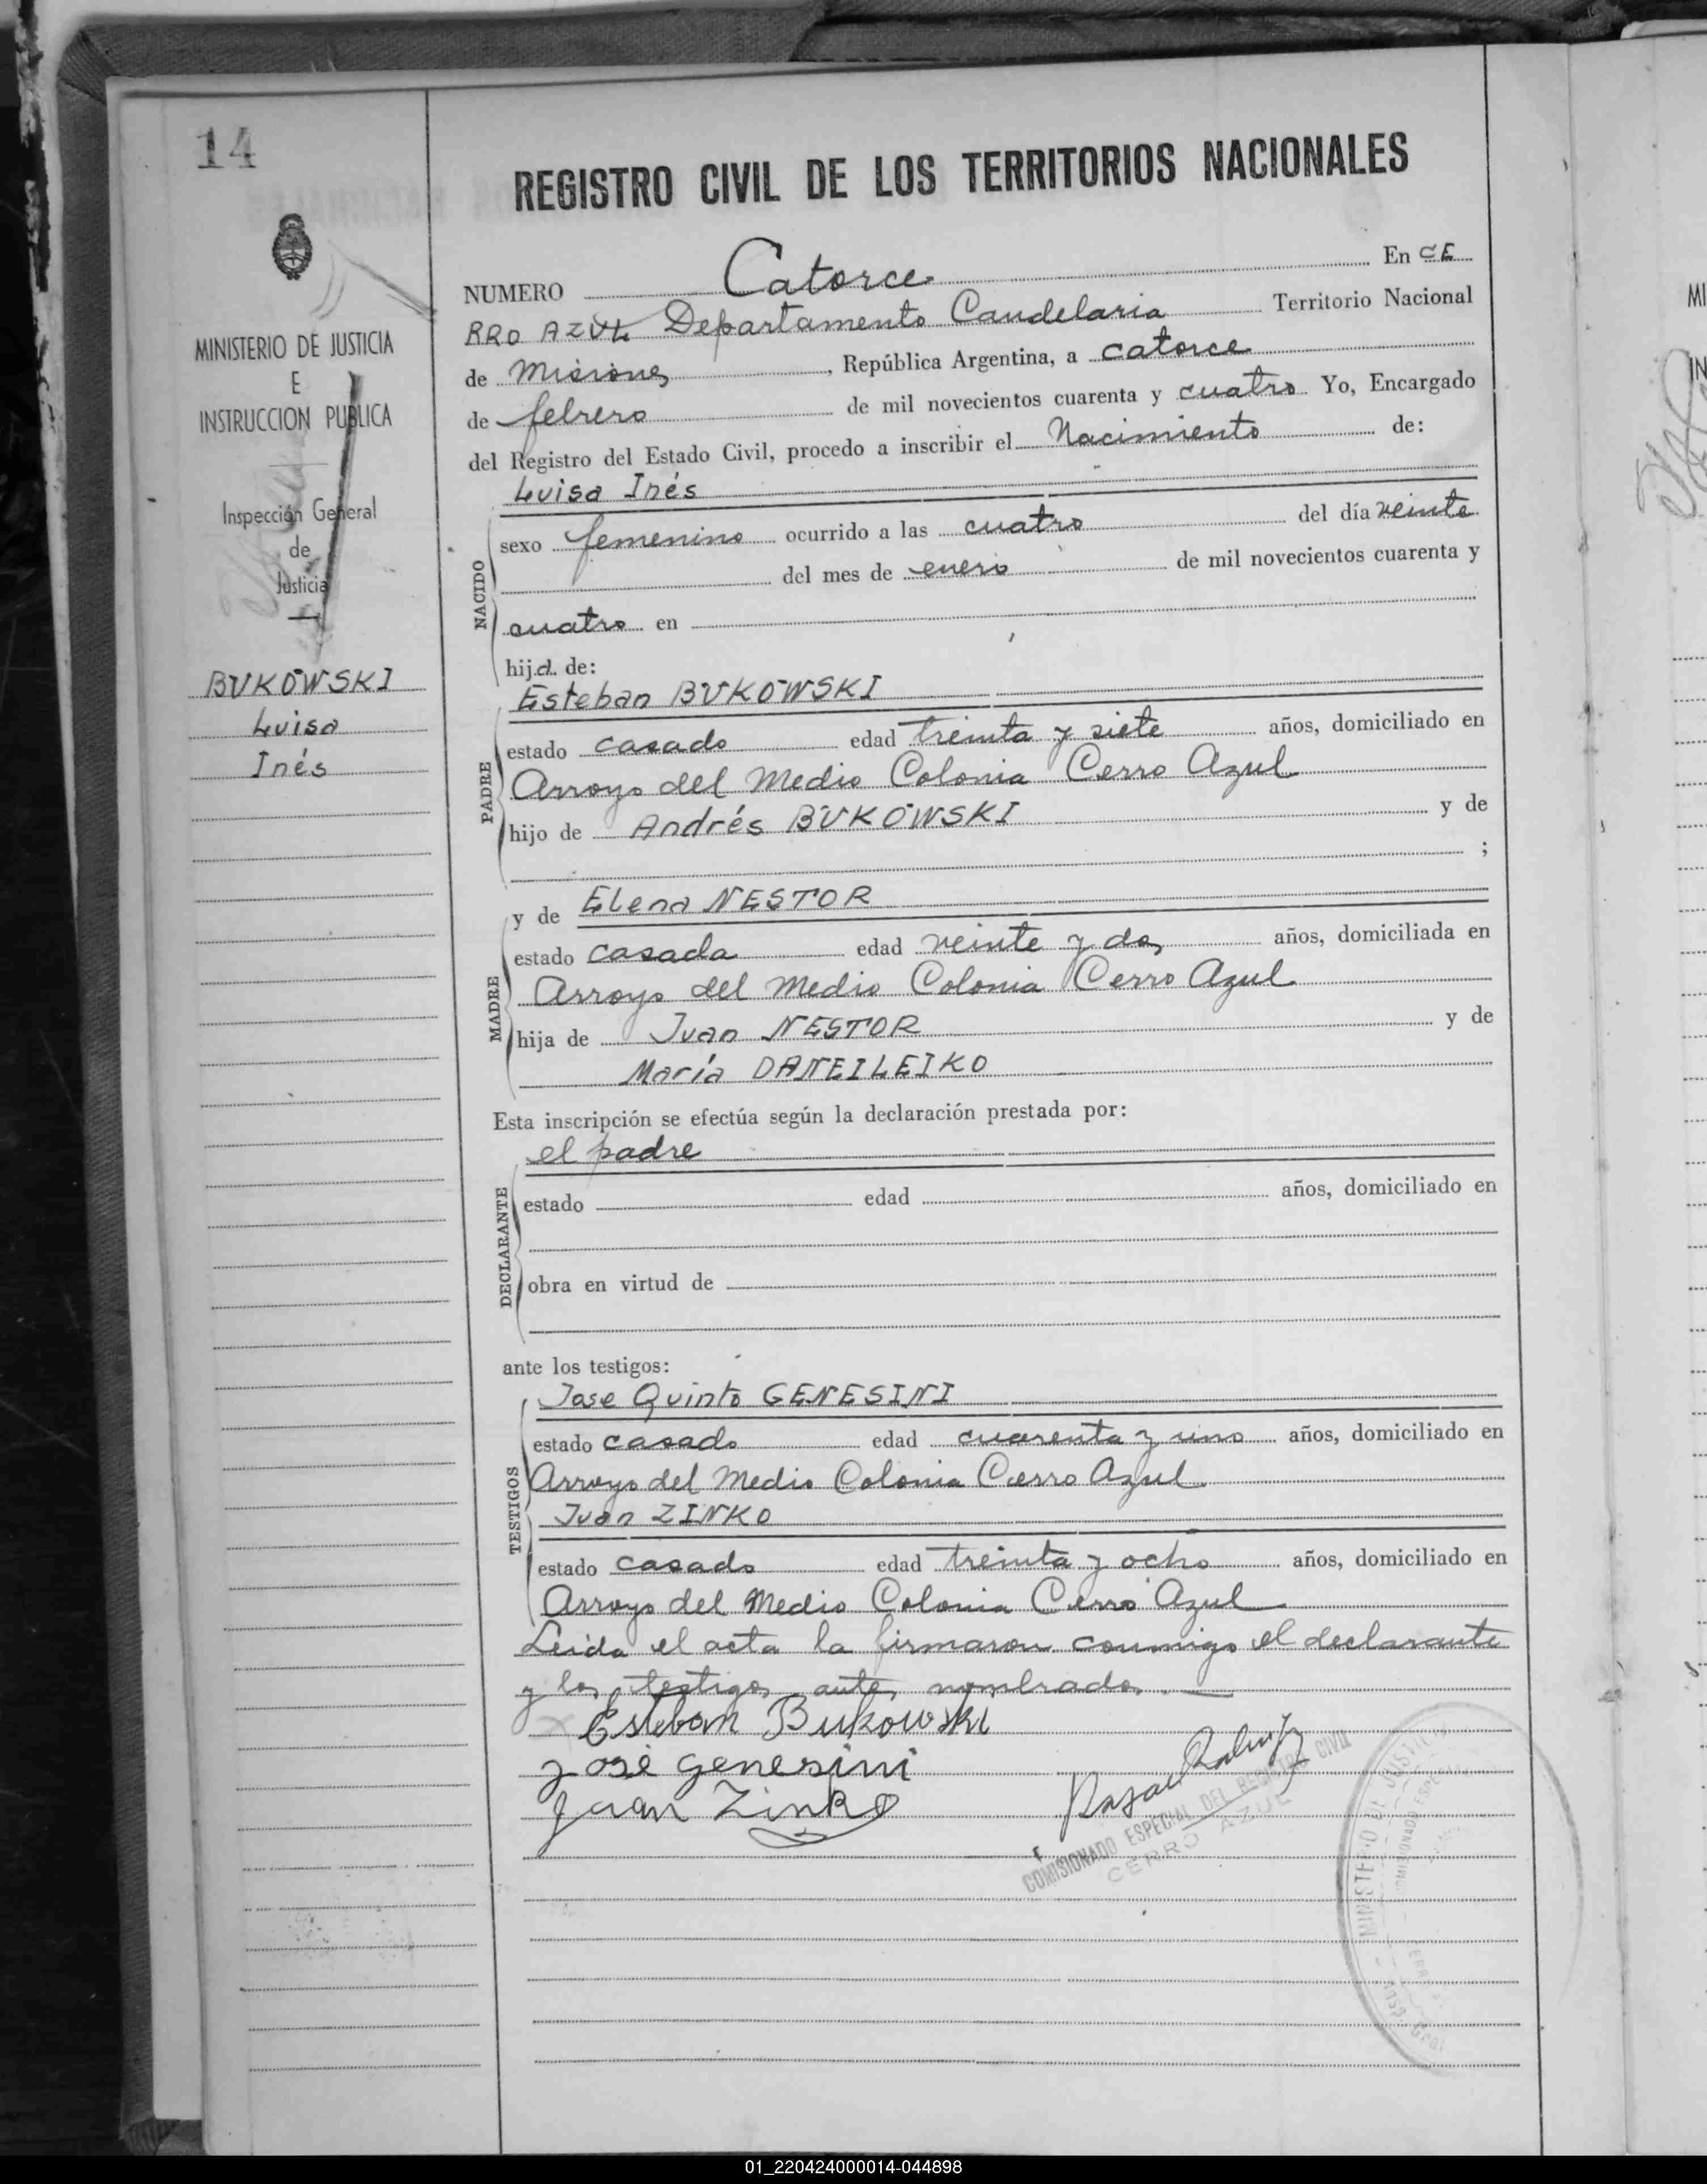 14
MINISTERIO DE JUSTICIA
E
INSTRUCCION PUBLICA
Inspección General
de
Justicia
BUKOWSKI
Luisa
Inés
REGISTRO CIVIL DE LOS TERRITORIOS NACIONALES
NUMERO Catorce En CE
RRO AZUL Departamento Candelaria Territorio Nacional
de Misiones, República Argentina, a catorce
de febrero de mil novecientos cuarenta y cuatro Yo, Encargado
del Registro del Estado Civil, procedo a inscribir el Nacimiento de:
NACIDO
Luisa Inés
sexo femenino ocurrido a las cuatro del día veinte
del mes de enero de mil novecientos cuarenta y
cuatro en
hija de:
PADRE
Esteban BUKOWSKI
estado casado edad treinta y siete años, domiciliado en
Arroyo del Medio Colonia Cerro Azul
hijo de Andrés BUKOWSKI y de
;
MADRE
y de Elena NESTOR
estado casada edad veinte y dos años, domiciliada en
Arroyo del Medio Colonia Cerro Azul
hija de Juan NESTOR y de
María DANEILEIKO
Esta inscripción se efectúa según la declaración prestada por:
DECLARANTE
el padre
estado edad años, domiciliado en
obra en virtud de
ante los testigos:
TESTIGOS
Jose Quinto GENESINI
estado casado edad cuarenta y uno años, domiciliado en
Arroyo del Medio Colonia Cerro Azul
Juan ZINKO
estado casado edad treinta y ocho años, domiciliado en
Arroyo del Medio Colonia Cerro Azul
Leida el acta la firmaron conmigo el declarante
y los testigos antes nombrados.
Esteban Bukowski
José genesini
Juan Zinko
COMISIONADO ESPECIAL DEL REGISTRO CIVIL
CERRO AZUL
01_220424000014-044898